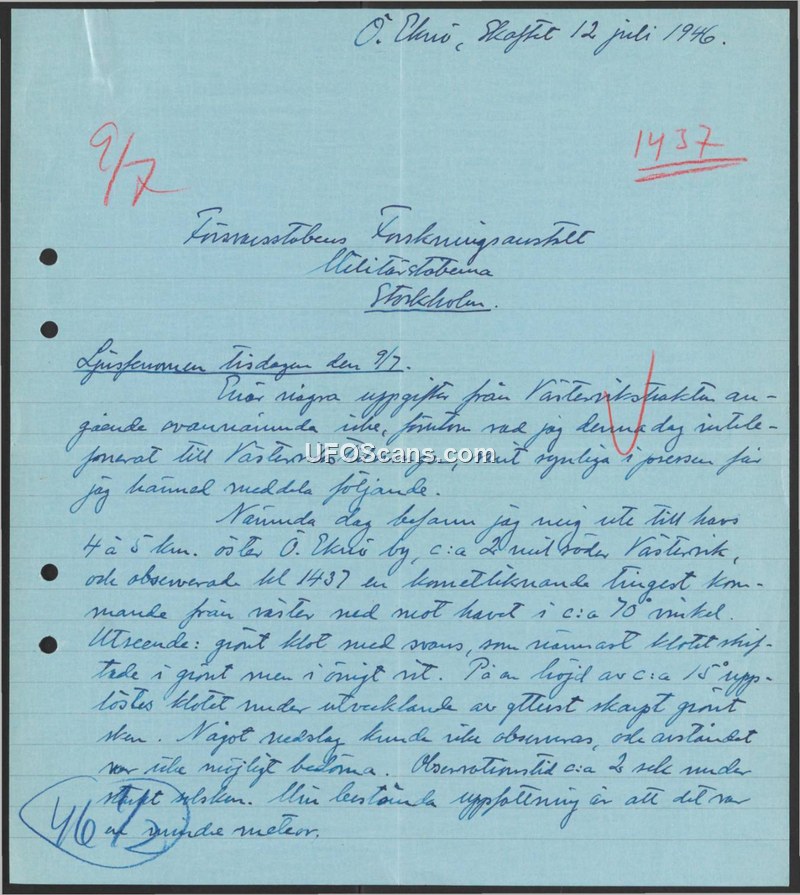 Ö. Eknö, Skaftet 12 juli 1946.
9/7
1437
Försvarsstabens Forskningsanstalt
Militärstaberna
Stockholm.
Ljusfenomen tisdagen den 9/7.
Enär några uppgifter från Västervikstrakten an-
gående ovannämnda icke, förutom vad jag denna dag intele-
fonerat till Västerviks, varit synliga i pressen får
jag härmed meddela följande.
Nämnda dag befann jag mig ute till havs
4 à 5 km. öster Ö. Eknö by, c:a 2 mil söder Västervik,
och observerade kl 1437 en kometliknande tingest kom-
mande från väster ned mot havet i c:a 70° vinkel.
Utseende: grönt klot med svans, som närmast klotet skif-
tade i grönt men i övrigt vit. På en höjd av c:a 15° upp-
löstes klotet under utvecklande av ytterst skarpt grönt
sken. Något nedslag kunde icke observeras, och avståndet
var icke möjligt bedöma. Observationstid c:a 2 sek under
starkt solsken. Min bestämda uppfattning är att det var
en mindre meteor.
46/2
UFOScans.com